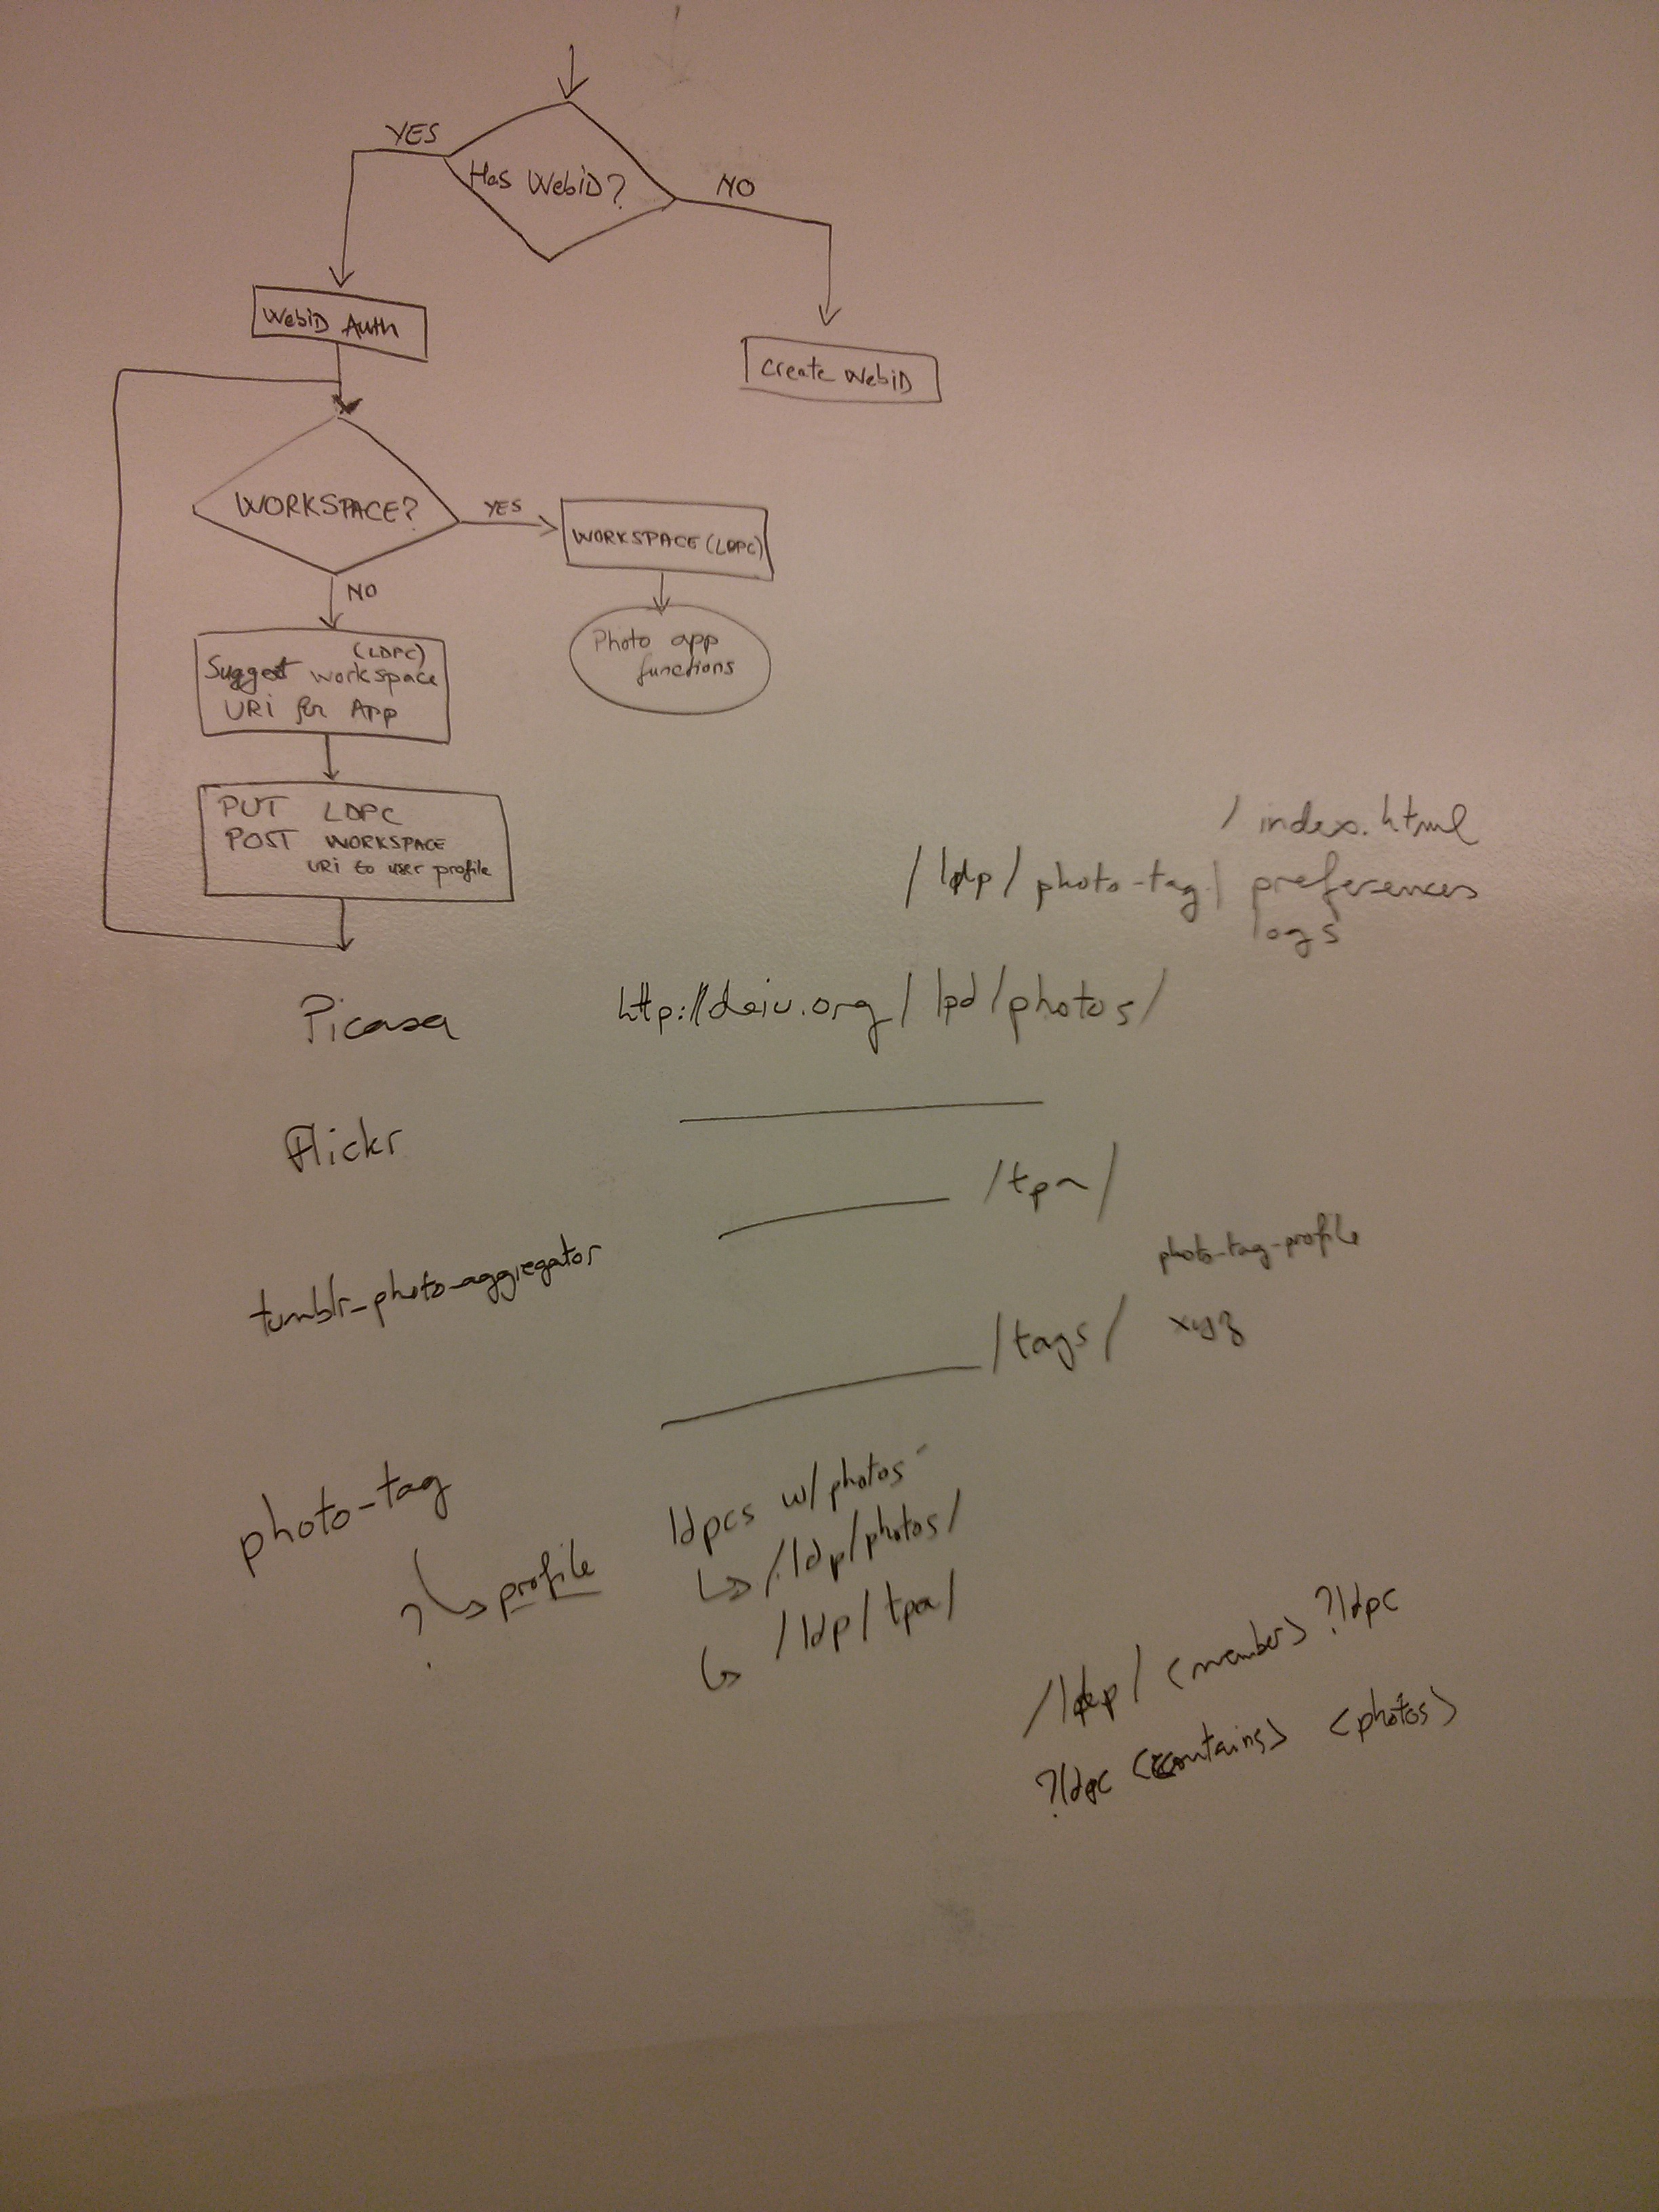 YES
Has WebiD?
NO
WebiD Auth
Create WebiD
WORKSPACE?
YES
WORKSPACE (LDPC)
NO
Photo app
functions
(LDPC)
Suggest workspace
URi for App
PUT LDPC
POST WORKSPACE
URi to user profile
/ index.html
/ldp/photo-tag/ preferences
logs
Picasa
http://deiu.org/lpd/photos/
Flickr
/tpa/
tumblr_photo-aggregator
photo-tag-profile
/tags/ xyz
photo-tag
? profile
ldpcs w/photos
/ldp/photos/
/ldp/tpa/
/ldp/ <member> ?ldpc
?ldpc <contains> <photos>